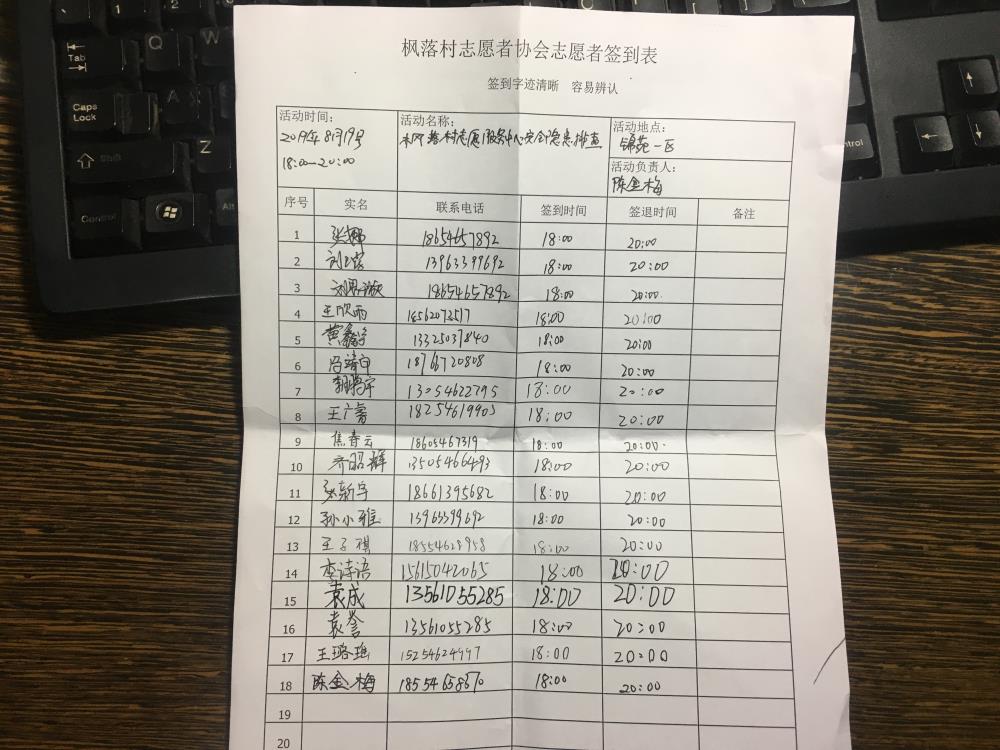 枫落村志愿者协会志愿者签到表
签到字迹清晰 容易辨认
活动时间：
2019年8月19号
18:00-20:00
活动名称：
枫落村志愿服务中心安全隐患排查
活动地点：
锦苑一区
活动负责人：
陈金梅
序号 实名 联系电话 签到时间 签退时间 备注
1 张娜 18654657892 18:00 20:00
2 13963399692 18:00 20:00
3 18654657892 18:00 20:00.
4 王欣雨 18562073517 18:00 20:00
5 黄鑫宇 13325037840 18:00 20:00
6 冯靖向 18766720808 18:00 20:00
7 13054622795 18:00 20:00
8 18254619903 18:00 20:00
9 焦春云 18605467319 18:00 20:00.
10 齐昭辉 13505466493 18:00 20:00
11 张新宇 18661395682 18:00 20:00
12 孙小雅 13963399692 18:00 20:00
13 王子祺 18554628958 18:00 20:00
14 李诗语 15615042065 18:00 20:00
15 袁成 13561055285 18:00 20:00
16 袁誉 13561055285 18:00 20:00
17 王璐瑶 15254624497 18:00 20:00
18 陈金梅 18554658670 18:00 20:00
19
20
Tab
Caps Lock
Shift
Control
Q
W
A
S
Z
Alt